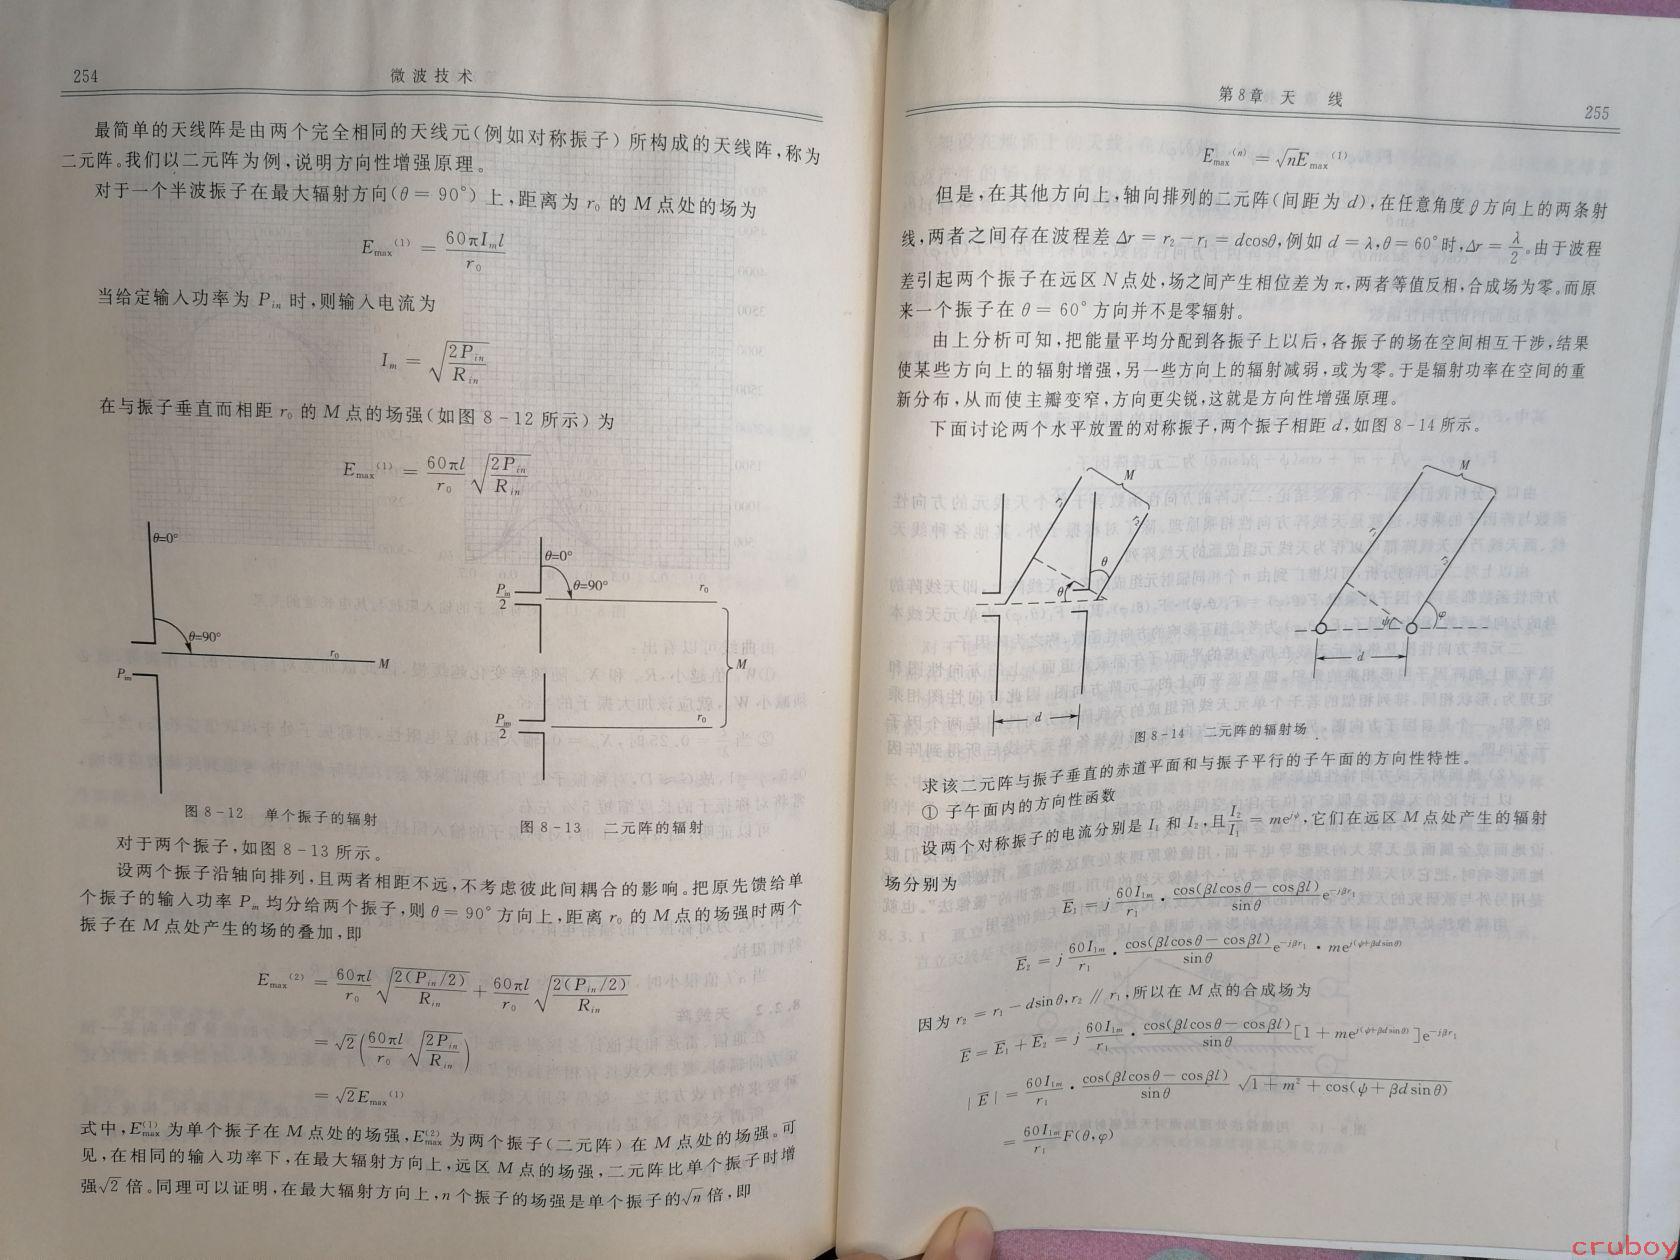 254
微波技术
最简单的天线阵是由两个完全相同的天线元(例如对称振子)所构成的天线阵,称为
二元阵。我们以二元阵为例,说明方向性增强原理。
对于一个半波振子在最大辐射方向(θ = 90°)上,距离为 r₀ 的 M 点处的场为
Emax⁽¹⁾ = 60πIₘl / r₀
当给定输入功率为 Pin 时,则输入电流为
Iₘ = √(2Pin / Rin)
在与振子垂直而相距 r₀ 的 M 点的场强(如图 8-12 所示)为
Emax⁽¹⁾ = 60πl / r₀ √(2Pin / Rin)
θ=0°
θ=90°
r₀
M
Pin
θ=0°
θ=90°
r₀
Pin/2
M
Pin/2
r₀
图 8-12 单个振子的辐射
图 8-13 二元阵的辐射
对于两个振子,如图 8-13 所示。
设两个振子沿轴向排列,且两者相距不远,不考虑彼此间耦合的影响。把原先馈给单
个振子的输入功率 Pin 均分给两个振子,则 θ = 90° 方向上,距离 r₀ 的 M 点的场强时两个
振子在 M 点处产生的场的叠加,即
Emax⁽²⁾ = 60πl / r₀ √(2(Pin/2) / Rin) + 60πl / r₀ √(2(Pin/2) / Rin)
= √2(60πl / r₀ √(2Pin / Rin))
= √2Emax⁽¹⁾
式中,Emax⁽¹⁾ 为单个振子在 M 点处的场强,Emax⁽²⁾ 为两个振子(二元阵)在 M 点处的场强。可
见,在相同的输入功率下,在最大辐射方向上,远区 M 点的场强,二元阵比单个振子时增
强√2 倍。同理可以证明,在最大辐射方向上,n 个振子的场强是单个振子的√n 倍,即
第8章 天 线
255
Emax⁽ⁿ⁾ = √nEmax⁽¹⁾
但是,在其他方向上,轴向排列的二元阵(间距为 d),在任意角度 θ 方向上的两条射
线,两者之间存在波程差 Δr = r₂ − r₁ = dcosθ,例如 d = λ,θ = 60° 时,Δr = λ/2。由于波程
差引起两个振子在远区 N 点处,场之间产生相位差为 π,两者等值反相,合成场为零。而原
来一个振子在 θ = 60° 方向并不是零辐射。
由上分析可知,把能量平均分配到各振子上以后,各振子的场在空间相互干涉,结果
使某些方向上的辐射增强,另一些方向上的辐射减弱,或为零。于是辐射功率在空间的重
新分布,从而使主瓣变窄,方向更尖锐,这就是方向性增强原理。
下面讨论两个水平放置的对称振子,两个振子相距 d,如图 8-14 所示。
M
r₁
r₂
θ
θ
d
M
r₁
r₂
ψ
φ
d
图 8-14 二元阵的辐射场
求该二元阵与振子垂直的赤道平面和与振子平行的子午面的方向性特性。
① 子午面内的方向性函数
设两个对称振子的电流分别是 I₁ 和 I₂,且 I₂/I₁ = me^{jψ},它们在远区 M 点处产生的辐射
场分别为
E̅₁ = j 60I₁ₘ / r₁ · cos(βlcosθ − cosβl) / sinθ e^{−jβr₁}
E̅₂ = j 60I₁ₘ / r₁ · cos(βlcosθ − cosβl) / sinθ e^{−jβr₁} · me^{j(ψ+βdsinθ)}
因为 r₂ = r₁ − dsinθ,r₂ ∥ r₁,所以在 M 点的合成场为
E̅ = E̅₁ + E̅₂ = j 60I₁ₘ / r₁ · cos(βlcosθ − cosβl) / sinθ [1 + me^{j(ψ+βdsinθ)}]e^{−jβr₁}
|E̅| = 60I₁ₘ / r₁ · cos(βlcosθ − cosβl) / sinθ √(1 + m² + cos(ψ + βdsinθ))
= 60I₁ₘ / r₁ F(θ,φ)
cruboy